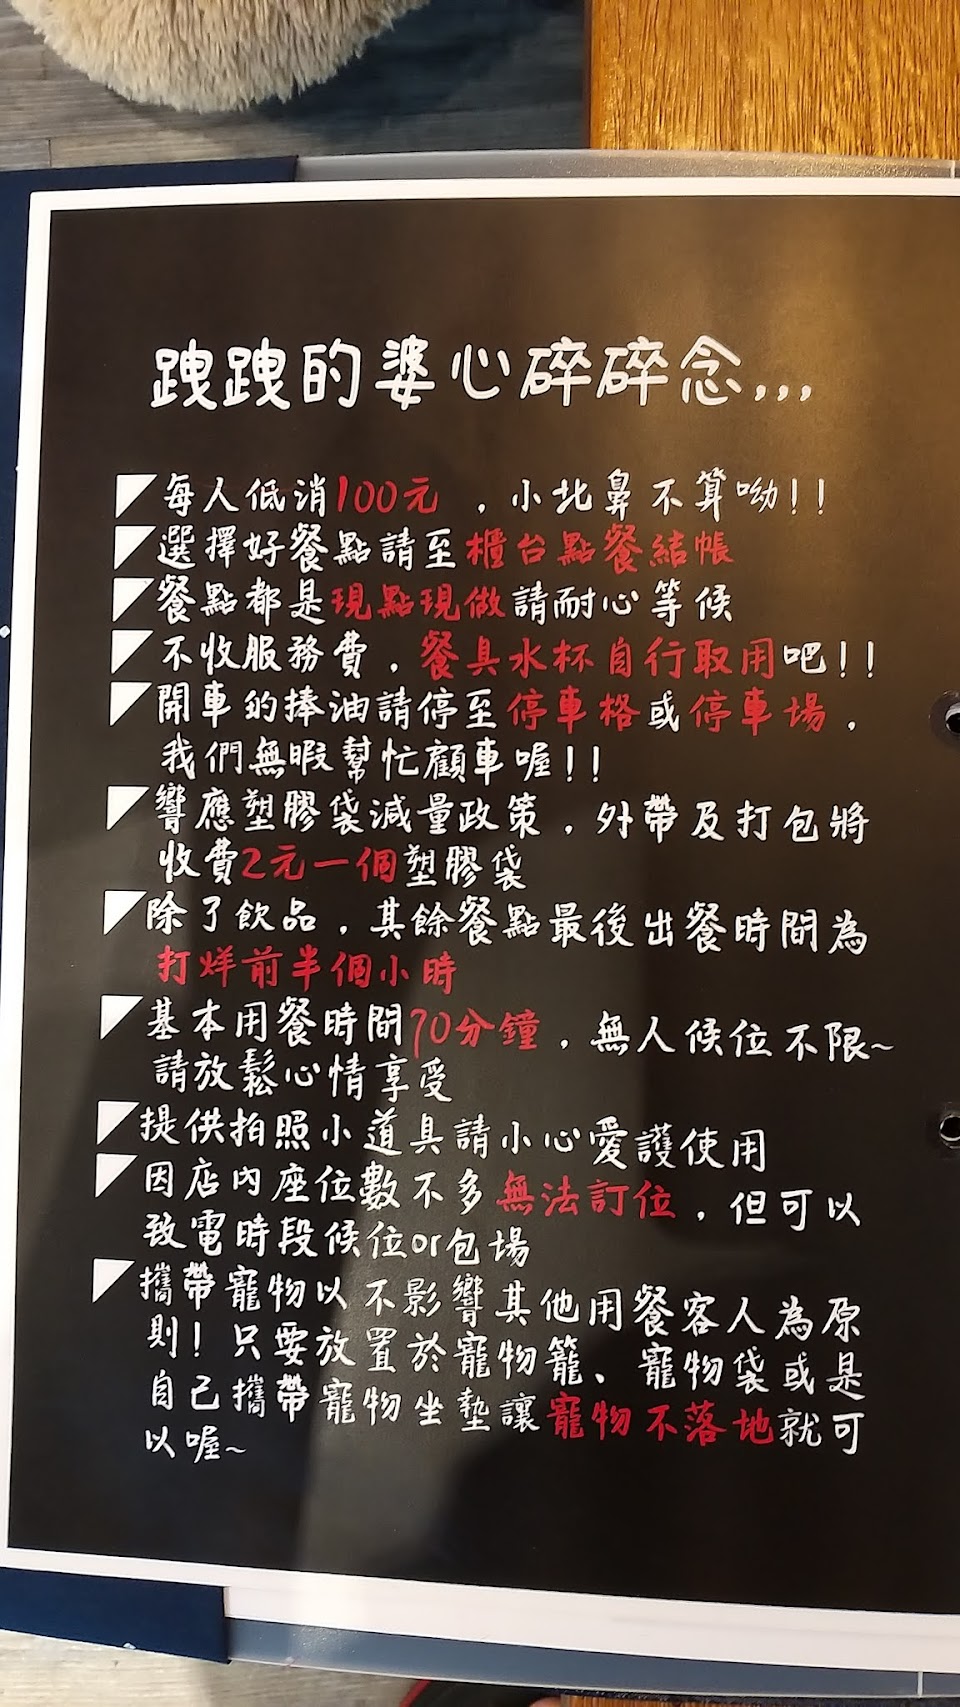 跩跩的婆心碎碎念,,,
每人低消100元，小北鼻不算呦!!
選擇好餐點請至櫃台點餐結帳
餐點都是現點現做請耐心等候
不收服務費，餐具水杯自行取用吧!!
開車的捧油請停至停車格或停車場，
我們無暇幫忙顧車喔!!
響應塑膠袋減量政策，外帶及打包將
收費2元一個塑膠袋
除了飲品，其餘餐點最後出餐時間為
打烊前半個小時
基本用餐時間70分鐘，無人候位不限~
請放鬆心情享受
提供拍照小道具請小心愛護使用
因店內座位數不多無法訂位，但可以
致電時段候位or包場
攜帶寵物以不影響其他用餐客人為原
則!只要放置於寵物籠、寵物袋或是
自己攜帶寵物坐墊讓寵物不落地就可
以喔~